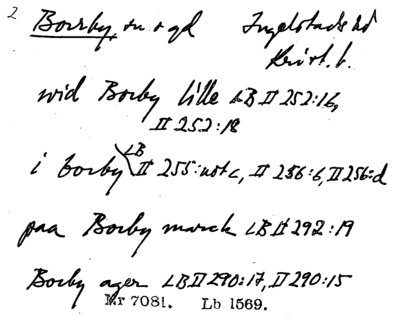 2 Borrby, sn o gd Ingelstads hd
Krist. l.
wid Borby lille LB II 252:16,
II 252:18
i borby LB II 255:not c, II 256:6, II 256:d
paa Borby marck LB II 292:19
Borby ager LB II 290:17, II 290:15
Nr 7081. Lb 1569.